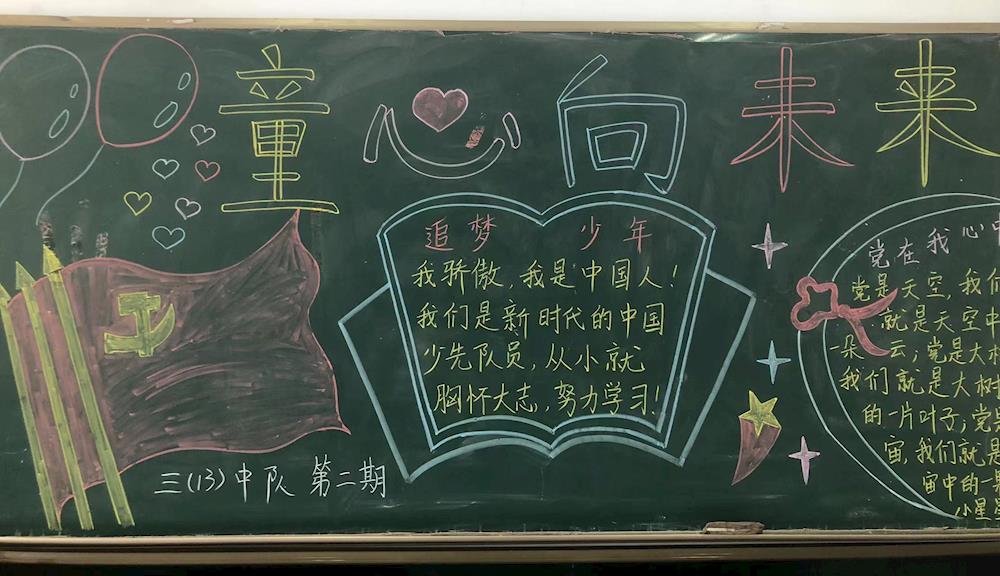 童心向未来
追梦 少年
我骄傲,我是中国人!
我们是新时代的中国
少先队员,从小就
胸怀大志,努力学习!
三(13)中队 第二期
党在我心中
党是天空,我们
就是天空中
一朵 云;党是大树
我们就是大树
的一片叶子;党是
宙,我们就是
宙中的一颗
小星星